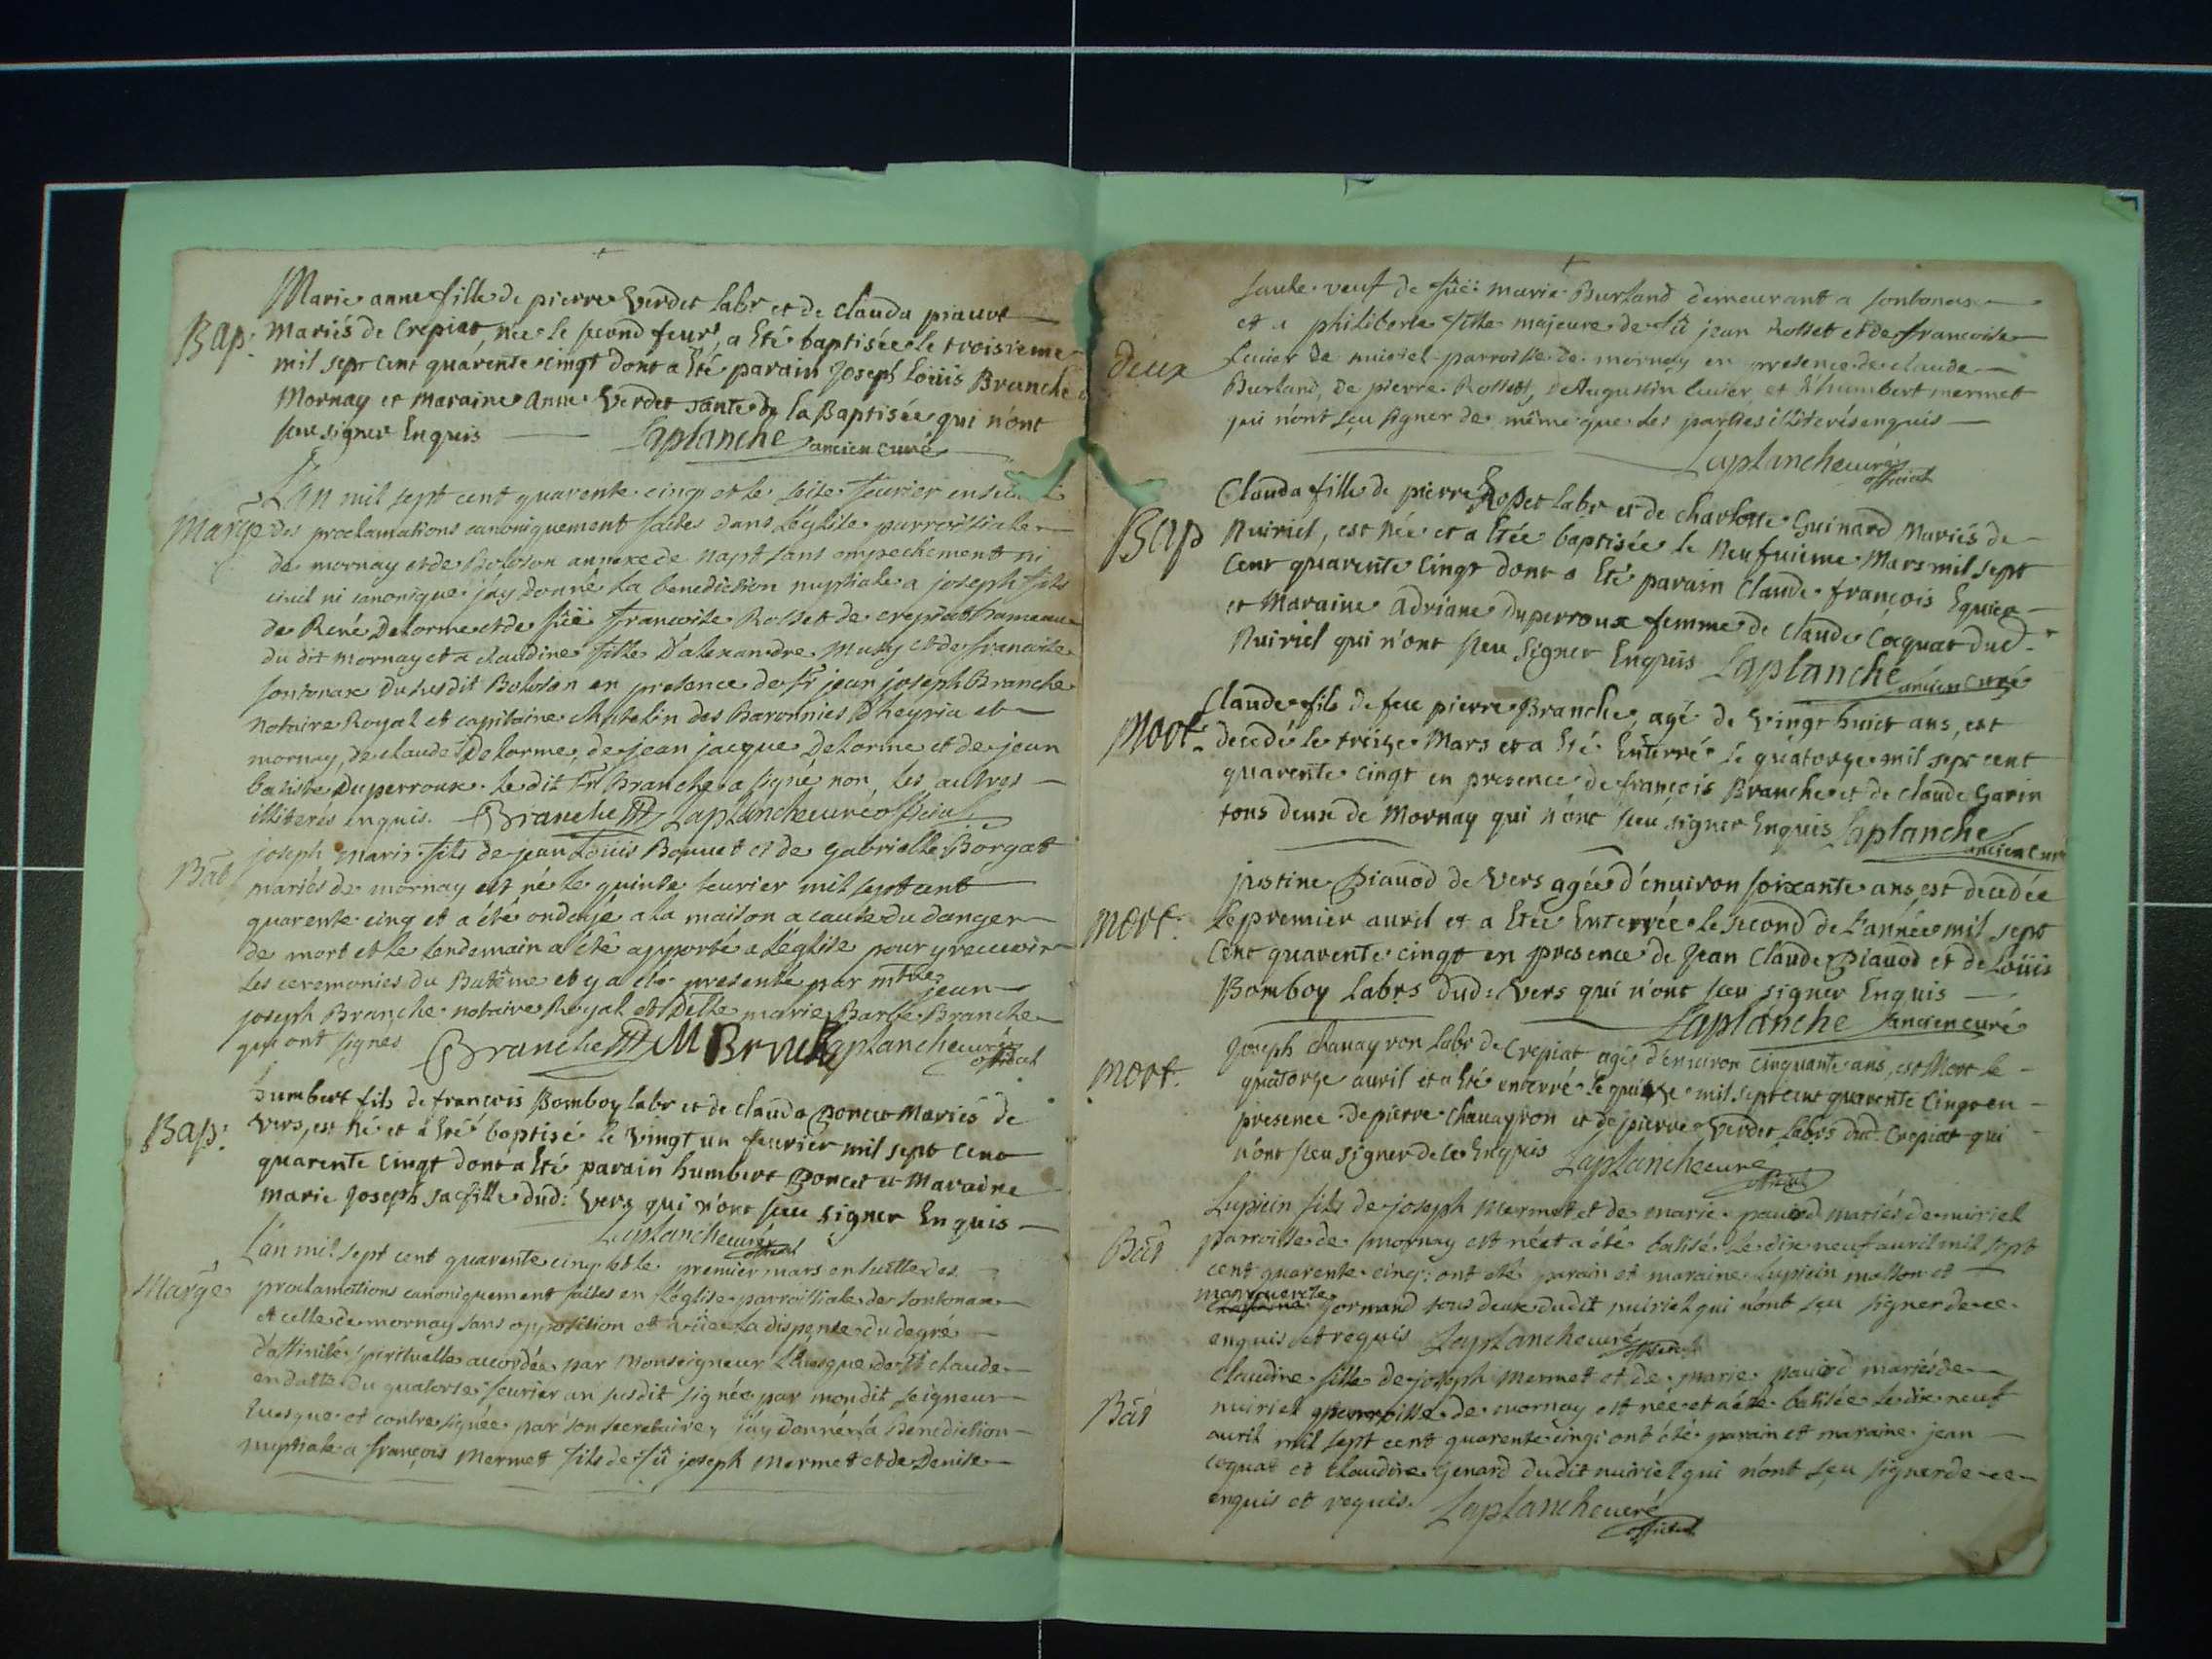 Marie anne fille de pierre Verdet labr et de Clauda piauot
Bap: Mariés de Crepiat, née le second feur, a Eté baptisée le troisieme
mil sept cent quarente cinqt dont a Eté parain Joseph Loüis Branche
Mornay et maraine anne Verdet tante de la Baptisée qui n'ont
sceu signer Enquis Laplanche ancien curé
L'an mil sept cent quarente cinq et le seise feurier ensuitte
Marge des proclamations canoniquement faites dans l'église parroissiale
de mornay et de Boloson annexe de napt sans empechement ni
ciuil ni canonique j'ay donné la benediction nuptiale a joseph fils
de René Delorme et de füe francoise Rosset de crepiat hameau
du dit mornay et a claudine fille d'alexandre Musy et de francoise
sontonax du susdit Boloson en presence de Sr jean joseph Branche
notaire Royal et capitaine chatelin des Baronnies d'heyria et
mornay, de claude Delorme, de jean jacque Delorme et de jean
batiste Duperroux. le dit Sr Branche a signé non les autres
illiterés enquis. Branche Laplanche curé official
Bat joseph marie fils de jean Louis Bouuet et de gabrielle Borgat
mariés de mornay est né le quinse feurier mil sept cent
quarente cinq et a été ondoyé a la maison a cause du danger
de mort et le lendemain a été apporté a l'église pour y receuoir
les ceremonies du Batême et y a été presenté par mtre jean
joseph Branche notaire Royal et Delle marie Barbe Branche
qui ont signés Branche M Brnche Laplanche curé official
humbert fils de francois Bomboy labr et de clauda poncet Mariés de
Bap: Vers, est né et a Eté baptisé le Vingt un feurier mil sept cent
quarente cinqt dont a Eté parain humbert poncet et Maraine
Marie Joseph sa fille dud: Vers qui n'ont sceu signer Enquis
Laplanche curé official
L'an mil sept cent quarente cinq et le premier mars ensuitte des
Marge proclamations canoniquement faites en l'église parroissiale de sontonax
et celle de mornay sans opposition et vüe la dispense du degré
d'affinité spirituelle accordée par Monseigneur l'Euesque de St claude
en datte du quatorse feurier an susdit signée par mondit seigneur
Euesque et contresignée par son secretaire, j'ay donné la Benediction
nuptiale a françois Mermet fils de fû joseph Mermet et de Denise
deux
veuf de füe marie Burland demeurant a sontonax
et a philiberte fille majeure de fû jean Rosset et de francoise
leuier de nuiriel parroisse de mornay en presence de claude
Burland, de pierre Rosset, d'Augustin leuier et d'humbert mermet
qui n'ont sçu signer de même que les parties illiterés enquis
Laplanche curé official
Clauda fille de pierre Rosset labr et de charlotte Guinard Mariés de
Bap Nuiriel, est née et a Etée baptisée le neufuieme Mars mil sept
cent quarente cinqt dont a Eté parain Claude françois Equice
et Maraine adriane duperroux femme de claude Coquat dud.
Nuiriel qui n'ont sceu signer Enquis Laplanche ancien curé
Claude fils de feu pierre Branche, agé de Vingt huict ans, est
Mort. decedé le treize Mars et a Eté Enterré le quatorze mil sept cent
quarente cinqt en presence de françois Branche et de claude Garin
tous deux de Mornay qui n'ont sceu signer Enquis Laplanche ancien curé
justine Piauod de Vers agée d'enuiron soixante ans, est decedée
Mort. le premier auril et a Etée Enterrée le second de l'année mil sept
cent quarente cinqt en presence de Jean Claude Piauod et de Loüis
Bomboy labrs dud: Vers qui n'ont sceu signer Enquis
Laplanche ancien curé
Joseph Chauayron labr de Crepiat agé d'enuiron cinquante ans, est Mort le
Mort. quatorze auril et a Eté enterré le quinze mil sept cent quarente Cinqt en
presence de pierre Chauayron et de pierre Verdet labrs dud. Crepiat qui
n'ont sceu signer de ce Enquis Laplanche curé official
Lupicin fils de joseph Mermet et de marie mariés de nuiriel
Bat parroisse de mornay est né et a été batisé le dix neuf auril mil sept
cent quarente cinq: ont été parain et maraine Lupicin masson et
marguerite gormand tous deux dudit nuiriel qui n'ont sçu signer de ce
enquis et requis Laplanche curé official
claudine fille de joseph Mermet et de marie mariés de
Bat nuiriel parroisse de mornay est née et a été batisée le dix neuf
auril mil sept cent quarente cinq: ont été parain et maraine jean
coquat et claudine genard dudit nuiriel qui n'ont sçu signer de ce
enquis et requis. Laplanche curé official